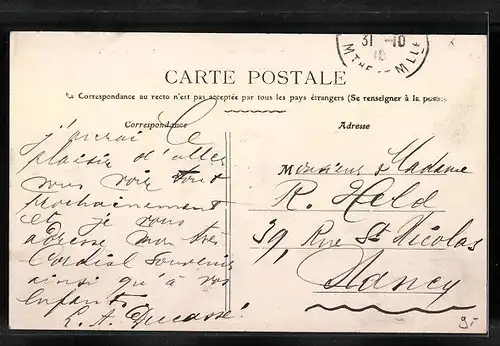 31 - 10
CARTE POSTALE
La Correspondance au recto n'est pas acceptée par tous les pays étrangers (Se renseigner à la poste)
Correspondance
Adresse
j'aurai le
plaisir d'aller
vous voir tout
prochainement
et je vous
adresse mon très
Cordial souvenir
ainsi qu'à vos
Enfants.
L. A. Ducasse.
Monsieur & Madame
R. Held
39, Rue St Nicolas
Nancy
9.-